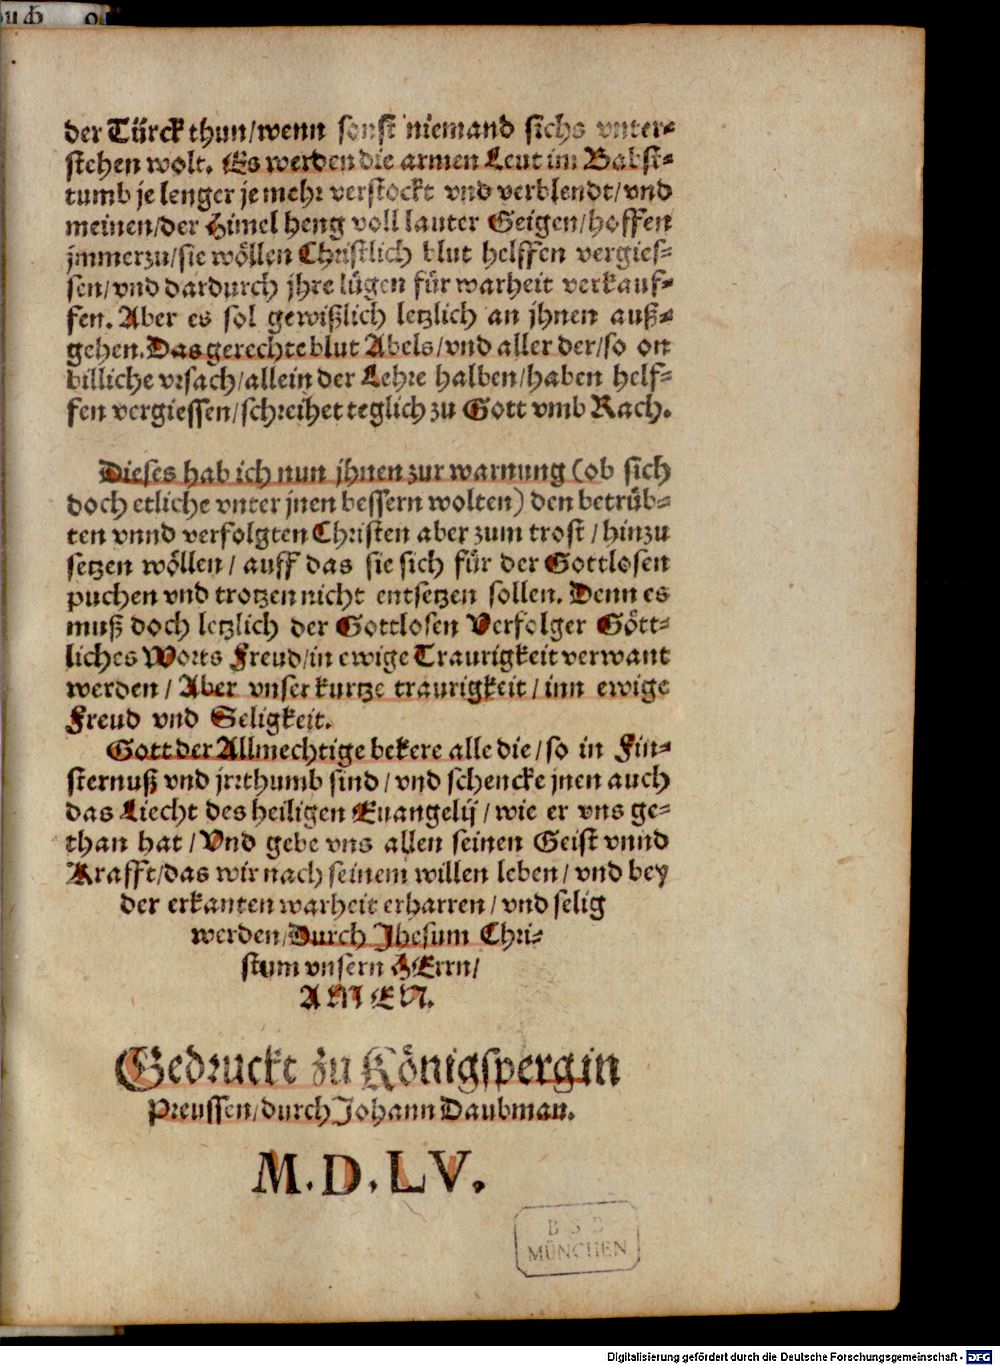 der Türck thun/wenn sonst niemand sichs vnter⸗
stehen wolt. Es werden die armen Leut im Babst⸗
tumb je lenger je mehr verstockt vnd verblendt/vnd
meinen/der Himel heng voll lauter Geigen/hoffen
jmmerzu/sie wöllen Christlich blut helffen vergies⸗
sen/vnd dardurch jhre lügen für warheit verkauf⸗
fen. Aber es sol gewißlich letzlich an jhnen auß⸗
gehen. Das gerechte blut Abels/vnd aller der/so on
billiche vrsach/allein der Lehre halben/haben helf⸗
fen vergiessen/schreihet teglich zu Gott vmb Rach.
Dieses hab ich nun jhnen zur warnung (ob sich
doch etliche vnter jnen bessern wolten) den betrüb⸗
ten vnnd verfolgten Christen aber zum trost/hinzu
setzen wöllen/auff das sie sich für der Gottlosen
puchen vnd trotzen nicht entsetzen sollen. Denn es
muß doch letzlich der Gottlosen Verfolger Gött⸗
liches Worts Freud/in ewige Traurigkeit verwant
werden/Aber vnser kurtze traurigkeit/inn ewige
Freud vnd Seligkeit.
Gott der Allmechtige bekere alle die/so in Fin⸗
sternuß vnd jrrthumb sind/vnd schencke jnen auch
das Liecht des heiligen Euangelij/wie er vns ge⸗
than hat/Vnd gebe vns allen seinen Geist vnnd
Krafft/das wir nach seinem willen leben/vnd bey
der erkanten warheit erharren/vnd selig
werden/Durch Jhesum Chri⸗
stum vnsern HErrn/
AMEN.
Gedruckt zu Königsperg in
Preussen/durch Johann Daubman.
M.D.LV.
BSB
MÜNCHEN
Digitalisierung gefördert durch die Deutsche Forschungsgemeinschaft - DFG